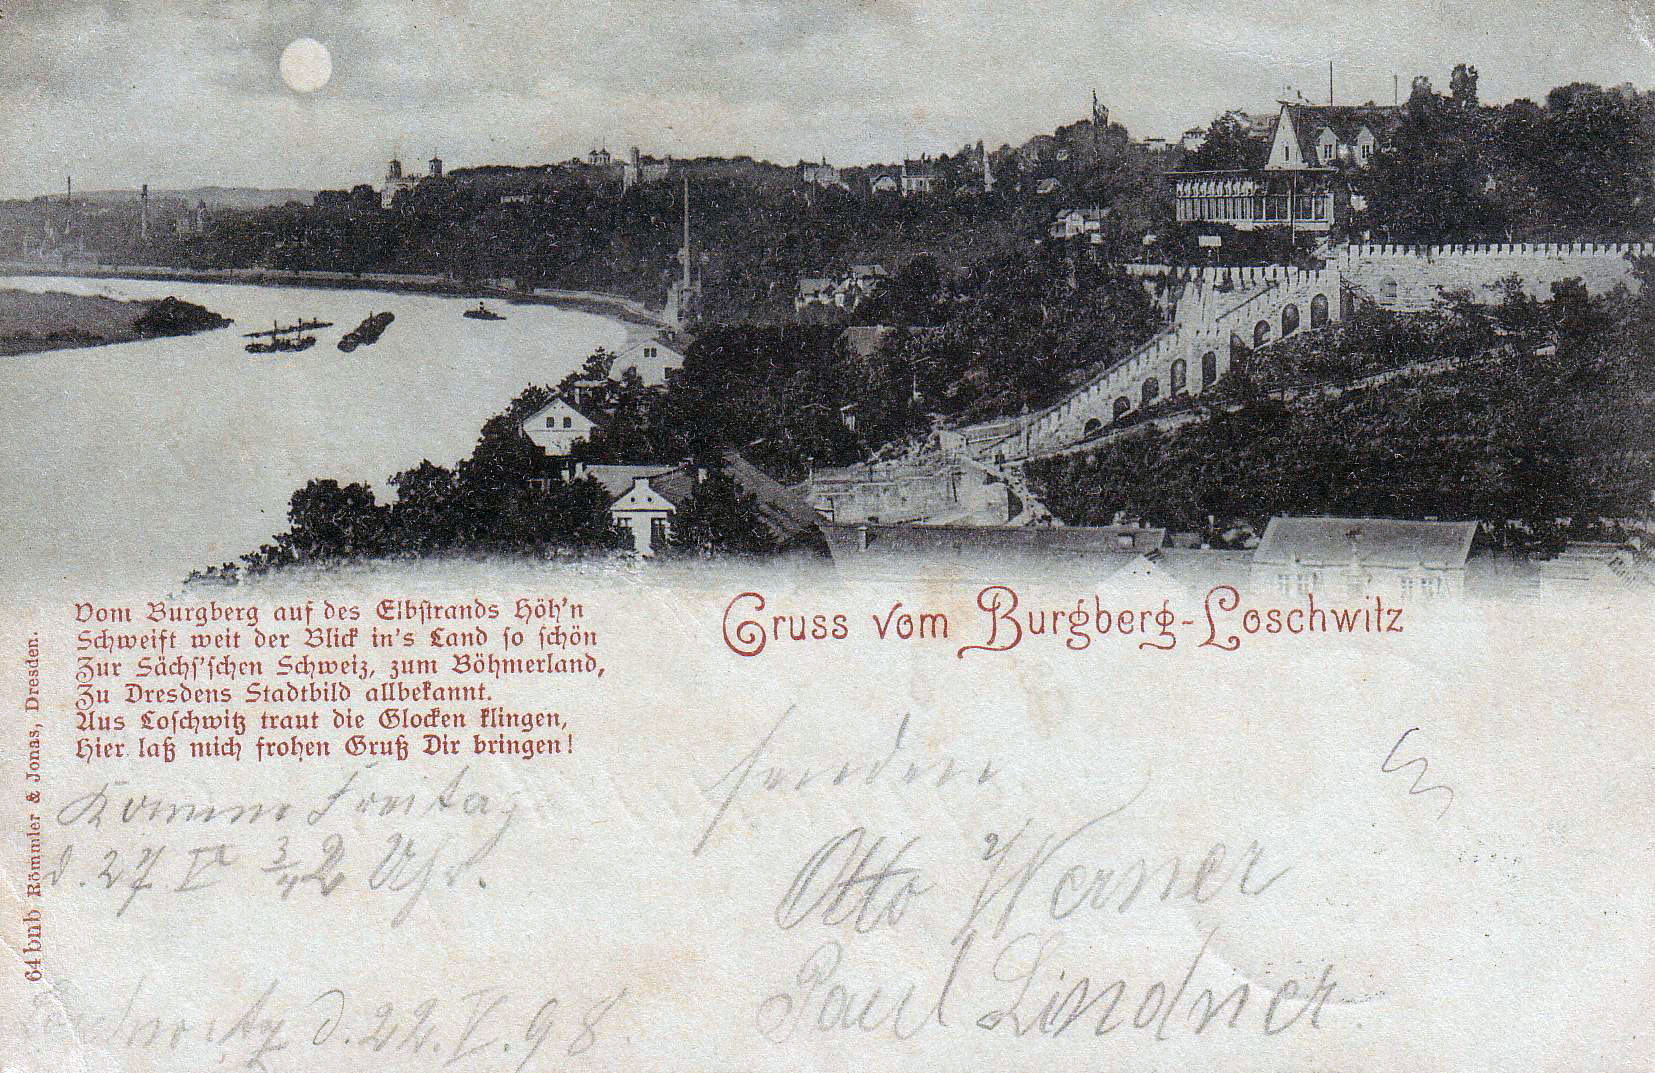 Vom Burgberg auf des Elbstrands Höh'n
Schweift weit der Blick in's Land so schön
Zur Sächs'schen Schweiz, zum Böhmerland,
Zu Dresdens Stadtbild allbekannt.
Aus Loschwitz traut die Glocken klingen,
Hier laß mich frohen Gruß Dir bringen!
Gruss vom Burgberg-Loschwitz
64 bnb Römmler & Jonas, Dresden.
Komme Freitag
d. 27. V ¾2 Uhr.
Loschwitz d. 22. V. 98.
senden
Otto Werner
Paul Lindner.